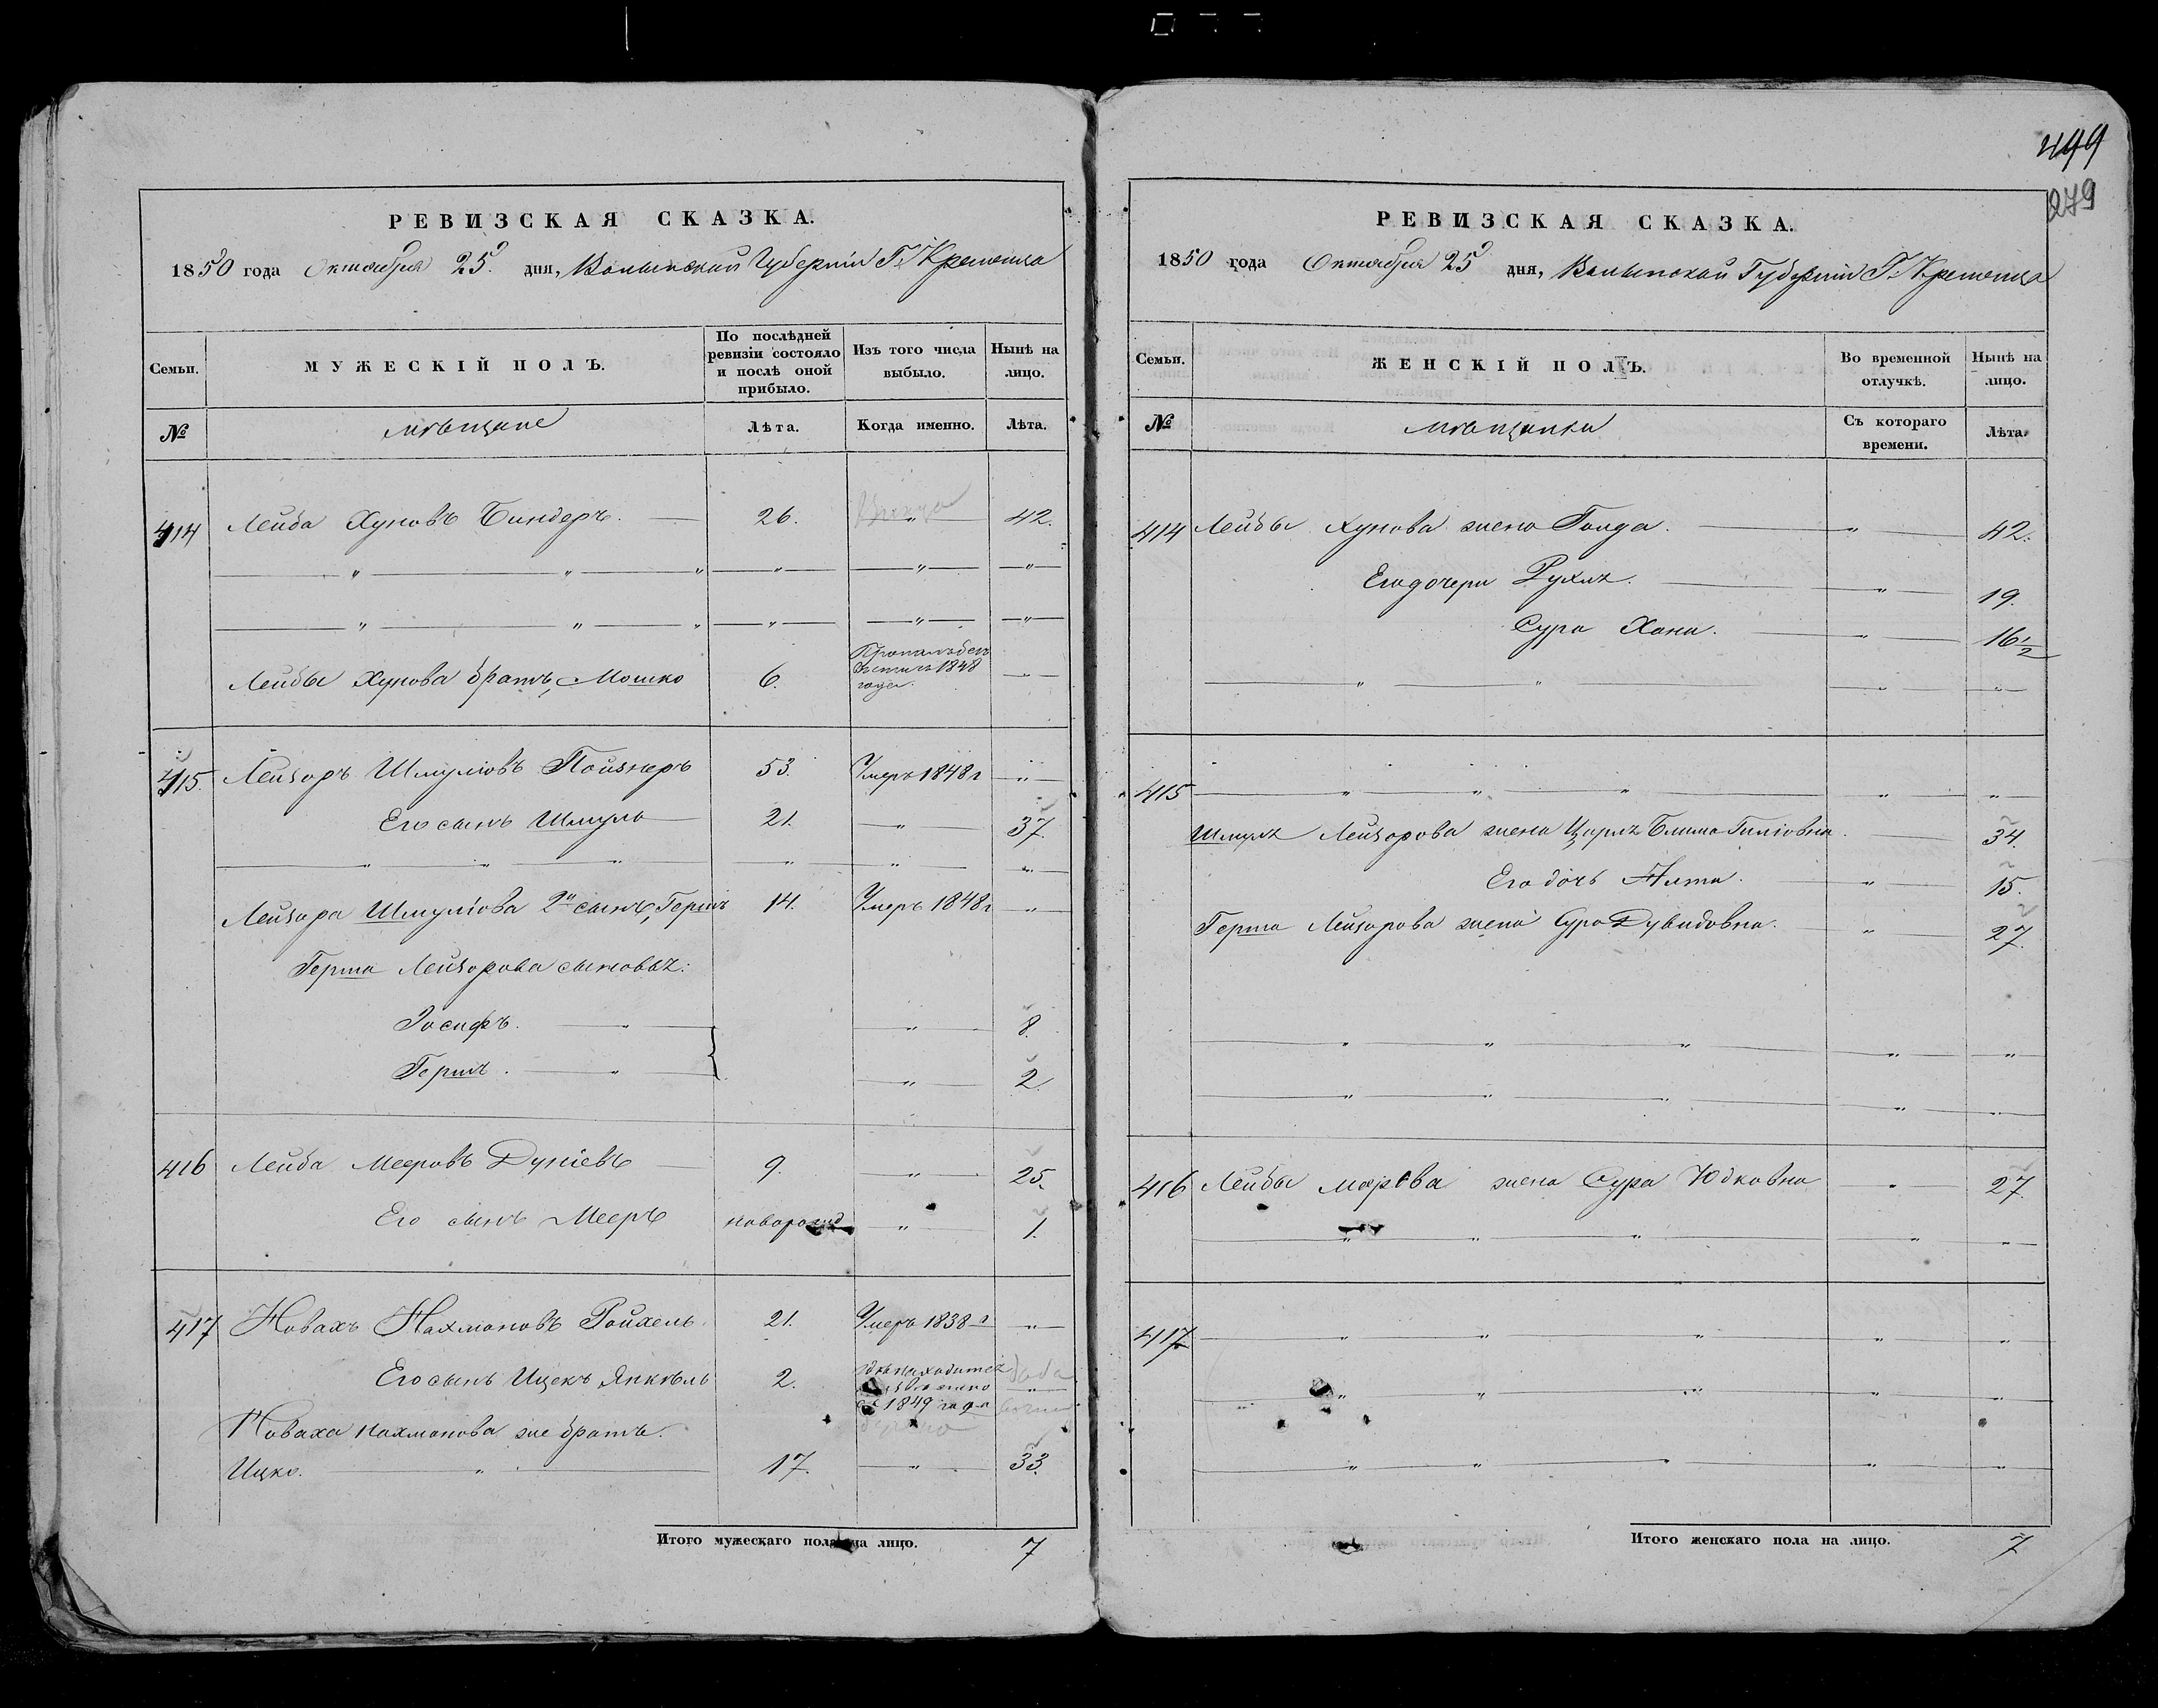 РЕВИЗСКАЯ СКАЗКА.
1850 года Октября 25 дня, Волынской Губерніи Г. Кременца
Семьи.
МУЖЕСКІЙ ПОЛЪ.
По послѣдней ревизіи состояло и послѣ оной прибыло.
Изъ того числа выбыло.
Нынѣ на лицо.
№
мѣщане
Лѣта.
Когда именно.
Лѣта.
414 Лейба Хуновъ Биндеръ. 26. " 42.
Лейбы Хунова братъ, Мошко 6. 1848 года.
415. Лейзоръ Шмуліовъ Пойзнеръ 53. Умеръ 1848 г "
Его сынъ Шмуль 21. " 37.
Лейзора Шмуліова 2й сынъ, Гершъ 14. Умеръ 1848 г "
Герша Лейзорова сыновья:
Іосифъ. " 8.
Гершъ. " 2.
416 Лейба Мееровъ Дуніевъ 9. " 25.
Его сынъ Мееръ новорожд " 1.
417 Новахъ Нахмановъ Ройхель. 21. Умеръ 1838 г "
Его сынъ Ицекъ Янкель 2. находится
съ 1849 года
Новаха Нахманова же братъ.
Ицко. " 17. " 33.
Итого мужескаго пола на лицо. 7
499
279
РЕВИЗСКАЯ СКАЗКА.
1850 года Октября 25 дня, Волынской Губерніи Г. Кременца
Семьи.
ЖЕНСКІЙ ПОЛЪ.
Во временной отлучкѣ.
Нынѣ на лицо.
№
мѣщанки
Съ котораго времени.
Лѣта.
414 Лейбы Хунова жена Голда. " 42.
Его дочери Рухля. " 19.
Сура Хана. " 16 1/2
415 " " " " "
Шмуля Лейзорова жена Царля Блима 34.
Его дочь Алта. " 15.
Герша Лейзорова жена Сура Дувидовна. " 27.
416 Лейбы Меерова жена Сура Юдковна " 27.
417 " " " " "
Итого женскаго пола на лицо. 7